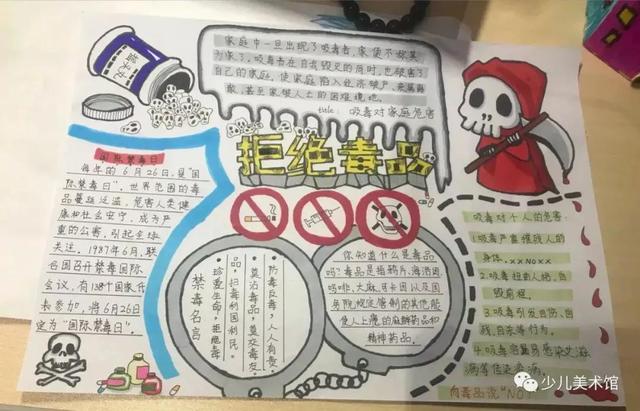 摇头丸
家庭中一旦出现了吸毒者,家便不成其
为家了,吸毒者在自我毁灭的同时,也破害了
自己的家庭,使家庭陷入经济破产、亲属离
散、甚至家破人亡的困难境地。
title: 吸毒对家庭危害
拒绝毒品
国际禁毒日
每年的6月26日,是"国
际禁毒日"。世界范围的毒
品蔓延泛滥,危害人类健
康和社会安宁,成为严
重的公害,引起全球
关注。1987年6月,联
合国召开禁毒国际
会议,有138个国家代
表参加,将6月26日
定为"国际禁毒日"。
禁毒名言
珍爱生命,拒绝毒
品,扫毒利国利民。
莫沾毒品,莫交毒友。
防毒反毒,人人有责。
你知道什么是毒品
吗?毒品是指鸦片、海洛因、
吗啡、大麻、可卡因以及国
务院规定管制的其他能
使人上瘾的麻醉药品和
精神药品。
吸毒对个人的危害:
1.吸毒严重摧残人的
身体。××No××
2.吸毒扭曲人格,自
毁前程。
3.吸毒引发自伤、自
残、自杀等行为。
4.吸毒容易感染艾滋
病等传染疾病。
向毒品说"NO"
少儿美术馆